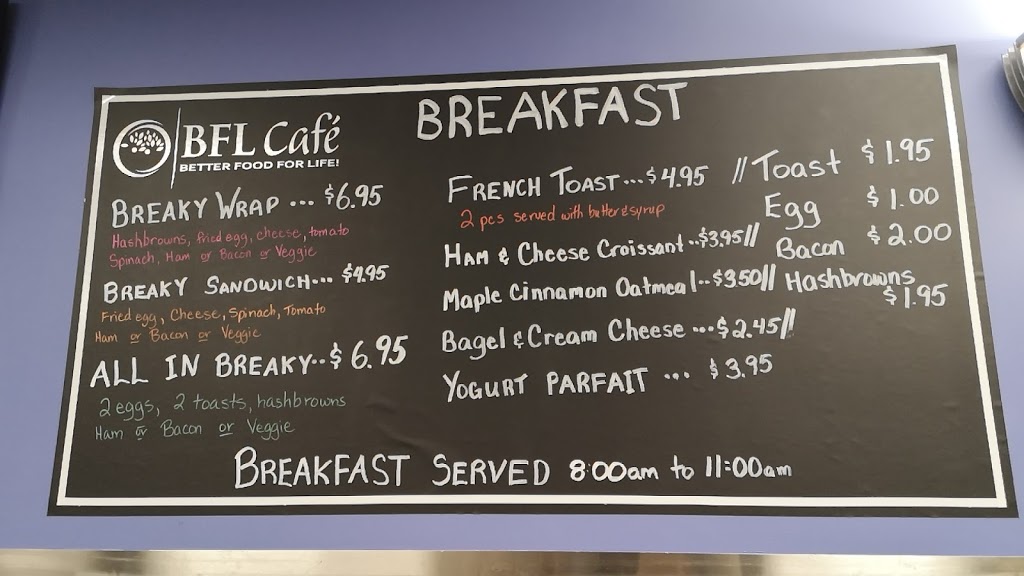 BFL Café
BETTER FOOD FOR LIFE!
BREAKFAST
BREAKY WRAP ... $6.95
Hashbrowns, fried egg, cheese, tomato
Spinach, Ham or Bacon or Veggie
BREAKY SANDWICH... $4.95
Fried egg, Cheese, Spinach, Tomato
Ham or Bacon or Veggie
ALL IN BREAKY..$ 6.95
2 eggs, 2 toasts, hashbrowns
Ham or Bacon or Veggie
FRENCH TOAST...$4.95 //
2 pcs served with butter & syrup
HAM & Cheese Croissant..$3.95//
Maple Cinnamon Oatmeal..$3.50//
Bagel & Cream Cheese ...$2.45//
YOGURT PARFAIT ... $3.95
Toast $1.95
Egg $1.00
Bacon $2.00
Hashbrowns
$1.95
BREAKFAST SERVED 8:00am to 11:00am